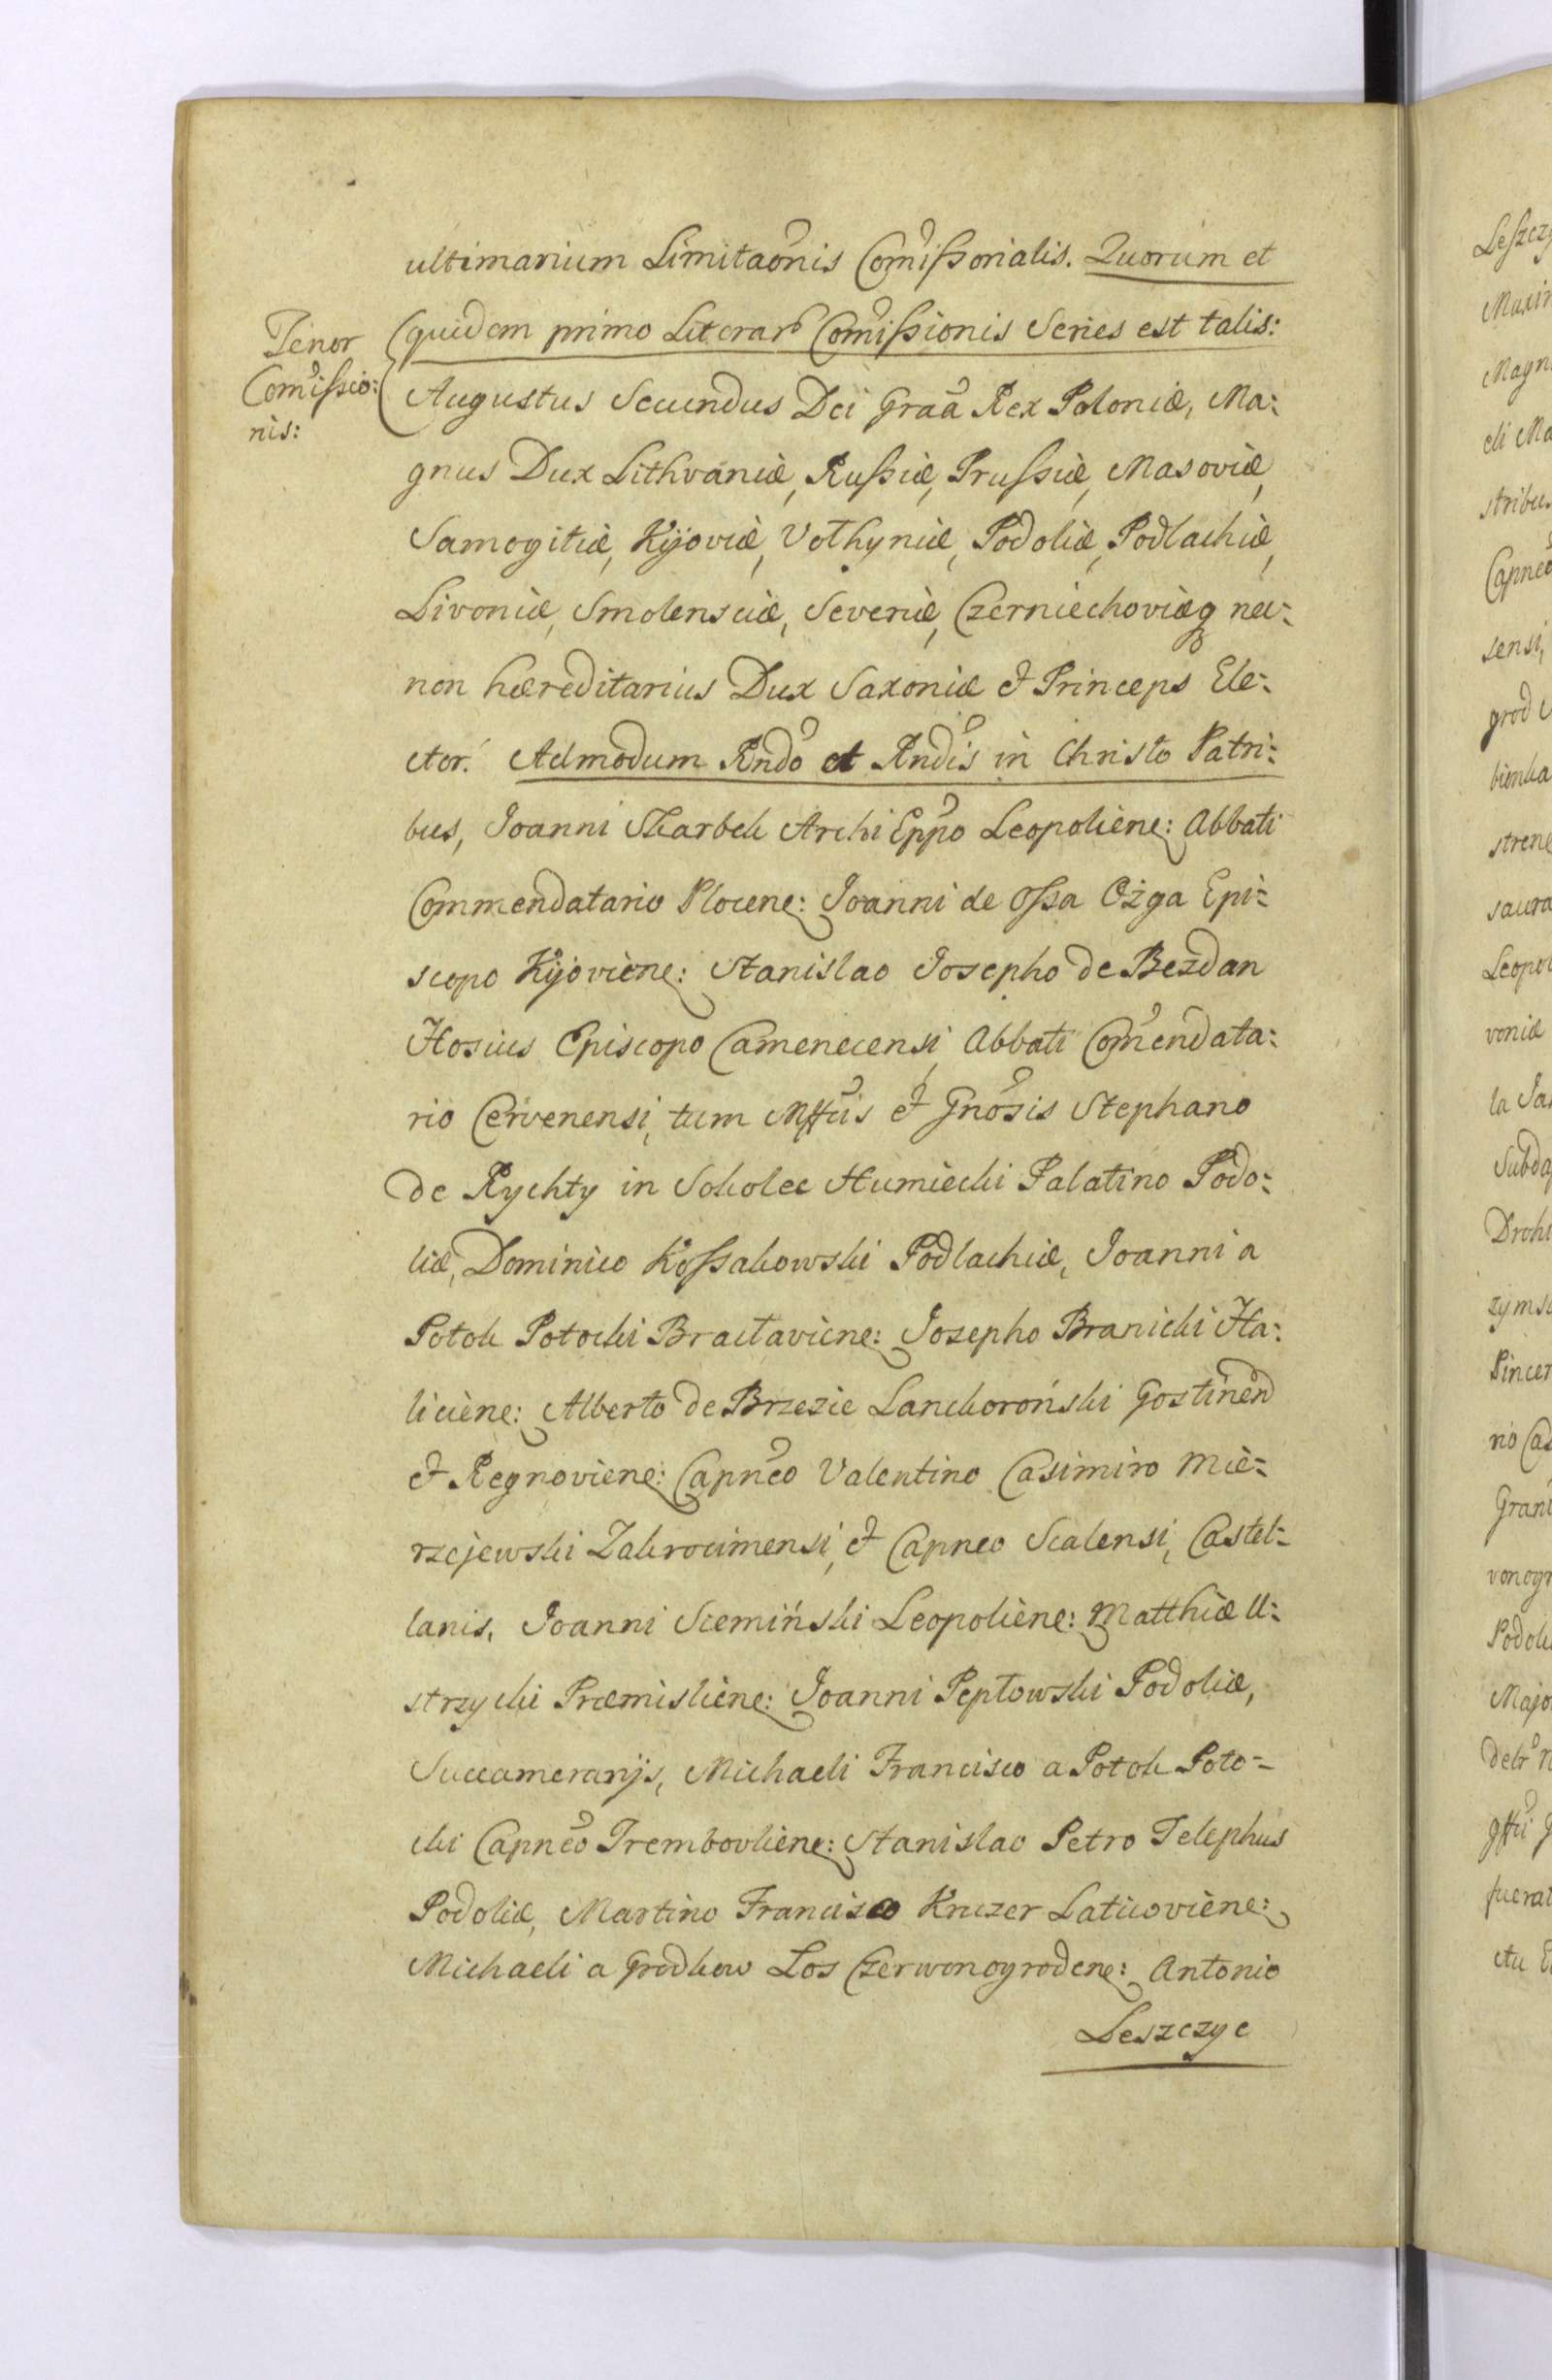 ultimarium Limitaōnis Com̃ißorialis. Quorum et
Tenor
Com̃ißio:
nis:
quidem primo Literarꝭ Com̃ißionis Series est talis:
Augustus Secundus Dei Graã Rex Poloniæ, Ma:
gnus Dux Lithvaniæ, Rußiæ, Prußiæ, Masoviæ,
Samogitiæ, Kijoviæ, Vołhyniæ, Podoliæ, Podlachiæ,
Livoniæ, Smolensciæ, Severiæ, Czerniechoviæq nec:
non hæreditarius Dux Saxoniæ et Princeps Ele:
ctor. Admodum Rndo et Rndis in Christo Patri:
bus, Joanni Skarbek Archi Eppo Leopoliene: Abbati
Commendatario Plocene: Joanni de Oßa Ożga Epi:
scopo Kijoviene: Stanislao Josepho de Bezdan
Hosius Episcopo Camenecensi, Abbati Com̃endata:
rio Cervenensi, tum Mffcis et Gnosis Stephano
de Rychty in Sokolec Humiecki Palatino Podo:
liæ, Dominico Koßakowski Podlachiæ, Joanni a
Potok Potocki Bracłaviene: Josepho Branicki Ha:
liciene: Alberto de Brzezie Lanckoroński Gostinen
et Regnoviene: Capneo Valentino Casimiro Mie:
rzejewski Zakrocimensi, et Capneo Scalensi, Castel:
lanis, Joanni Siemiński Leopoliene: Matthiæ U:
strzycki Præmisliene: Joanni Pepłowski Podoliæ,
Succamerarijs, Michaeli Francisco a Potok Poto:
cki Capneo Trembovliene: Stanislao Petro Telephus
Podoliæ, Martino Francisco Kriczer Laticoviene:
Michaeli a Grodkow Los Czerwonogrodene: Antonio
Leszczyc